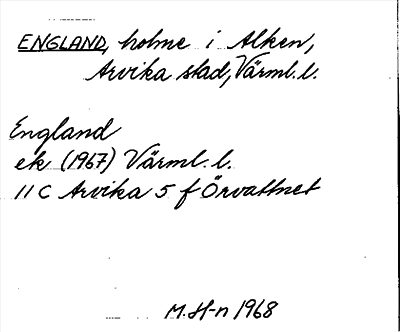 ENGLAND, holme i Alken,
Arvika stad, Värml. l.
England
ek (1967) Värml. l.
11 C Arvika 5 f Örvattnet
M. H-n 1968